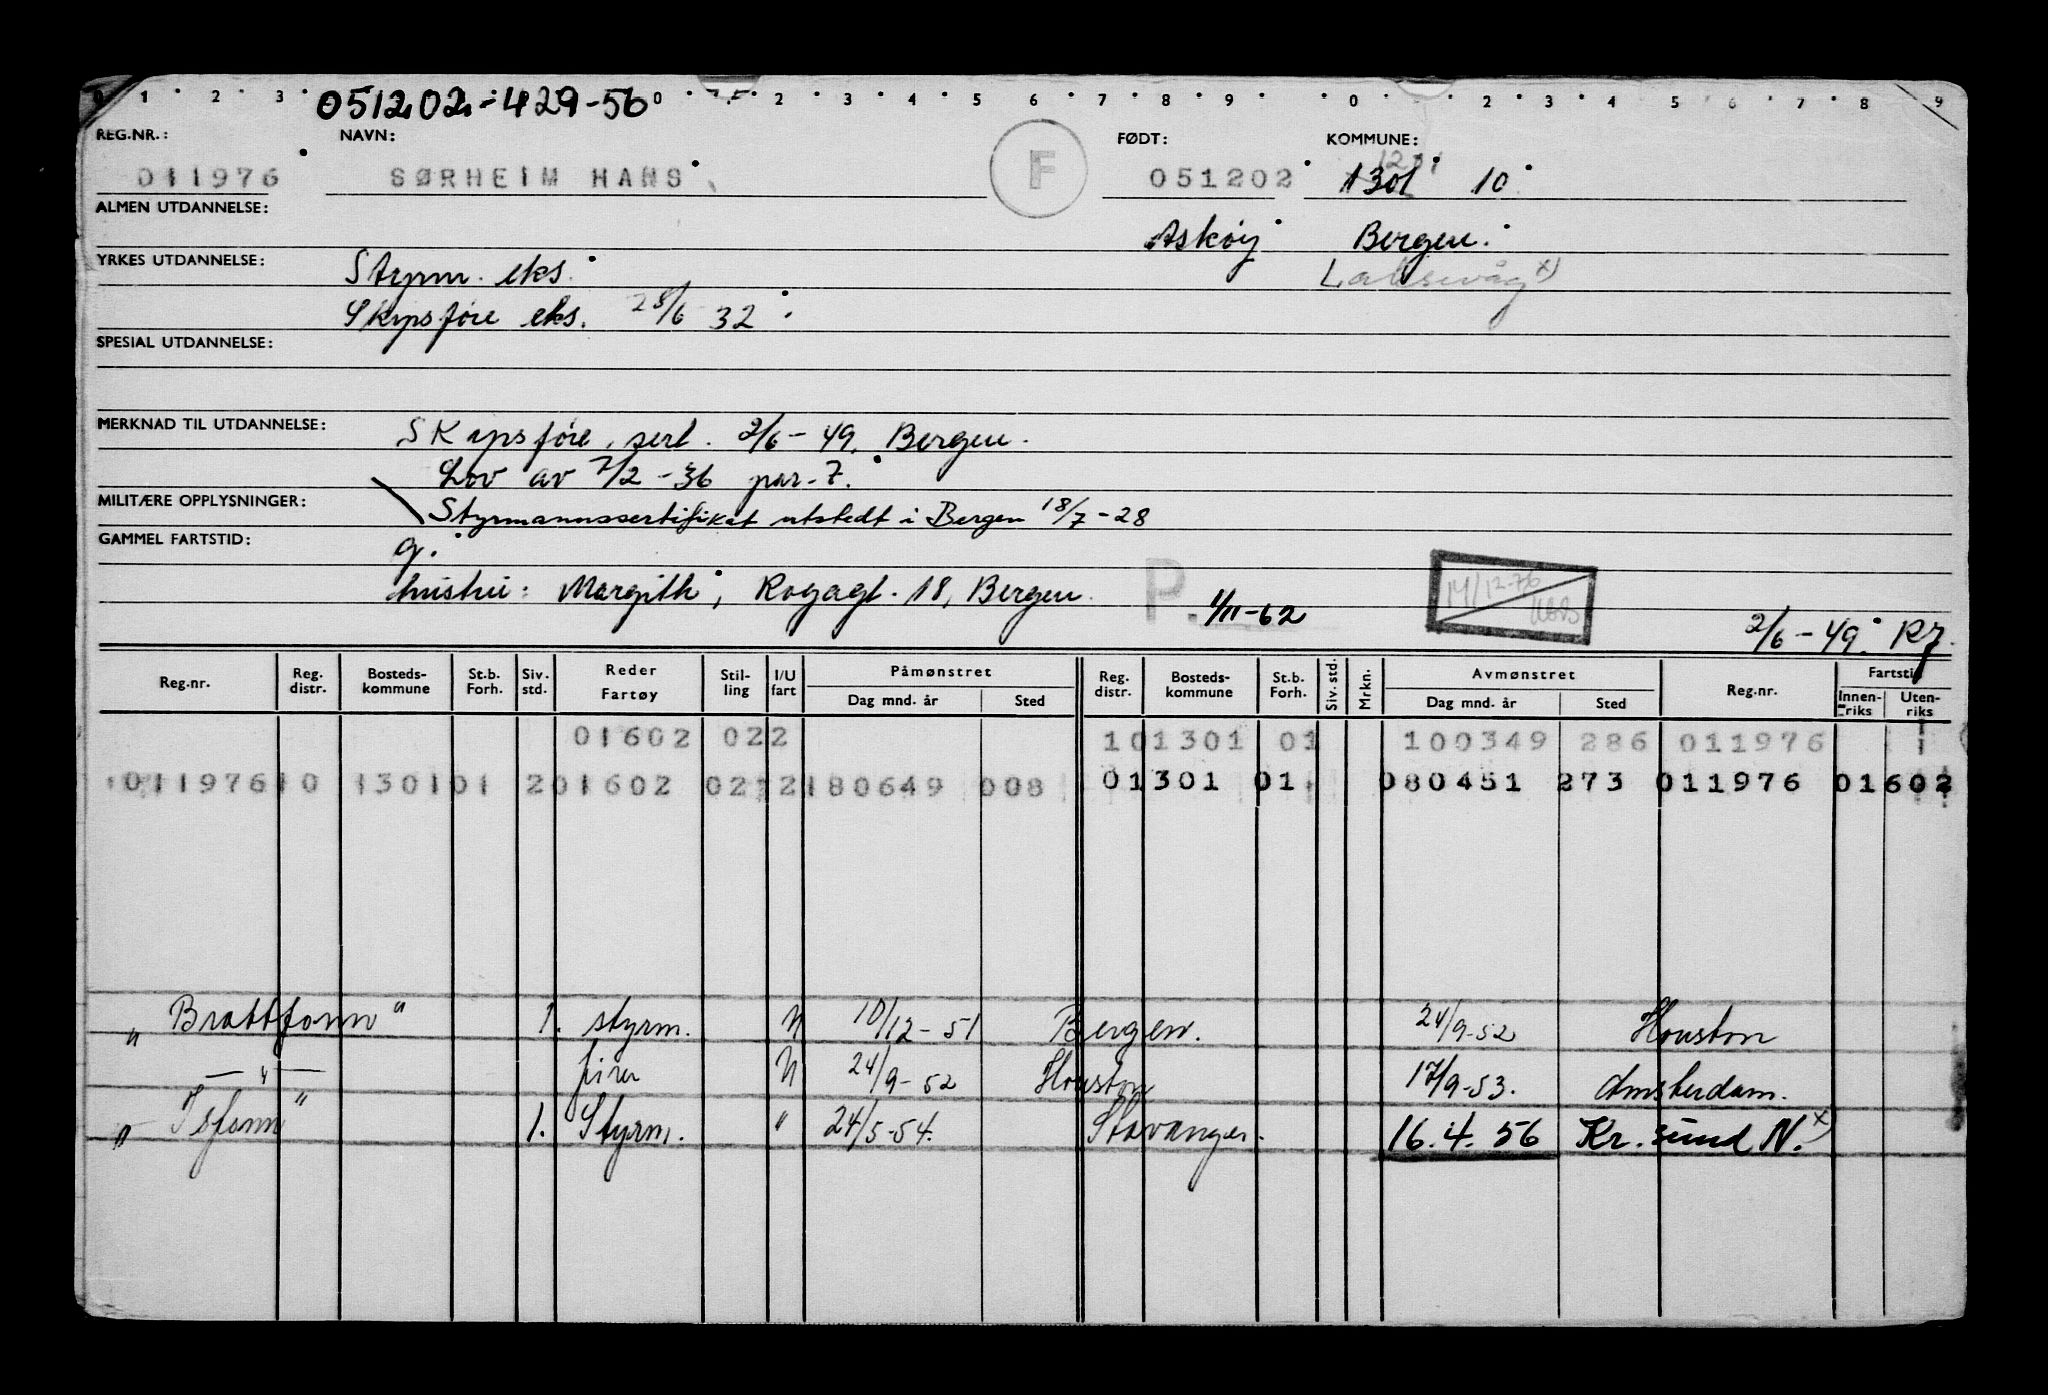 051202-429-56
REG.NR.: NAVN: FØDT: KOMMUNE:
011976 SØRHEIM HANS F 051202 1301 10
ALMEN UTDANNELSE:
Askøy Bergen.
YRKES UTDANNELSE: Styrm. eks. Laksevåg x)
Skipsføre eks. 28/6 32
SPESIAL UTDANNELSE:
MERKNAD TIL UTDANNELSE: Skipsføre, sert. 2/6-49. Bergen.
Lov av 7/2-36 par. 7.
MILITÆRE OPPLYSNINGER: Styrmannssertifikat utstedt i Bergen 18/7-28
GAMMEL FARTSTID: g.
hustru: Margith, Rogagt. 18, Bergen. P. 1/11-62 14/12-76
2/6-49.
Reg.nr. Reg. distr. Bosteds-kommune St.b. Forh. Siv. std. Reder Fartøy Stil-ling I/U fart Påmønstret Dag mnd. år Sted Reg. distr. Bosteds-kommune St.b. Forh. Siv. std. Mrkn. Avmønstret Dag mnd. år Sted Reg.nr. Fartstid Innen-riks Uten-riks
01602 022 101301 01 100349 286 011976
011976 10 1301 01 2 01602 02 2 2 180649 008 01301 01 080451 273 011976 01602
"Brattfonn" 1. styrm. U 10/12-51 Bergen. 24/9-52 Houston
— " — fører U 24/9-52 Houston 17/9-53. Amsterdam.
"Isfonn" 1. Styrm. " 24/5-54. Stavanger. 16.4.56 Kr.sund N. x)